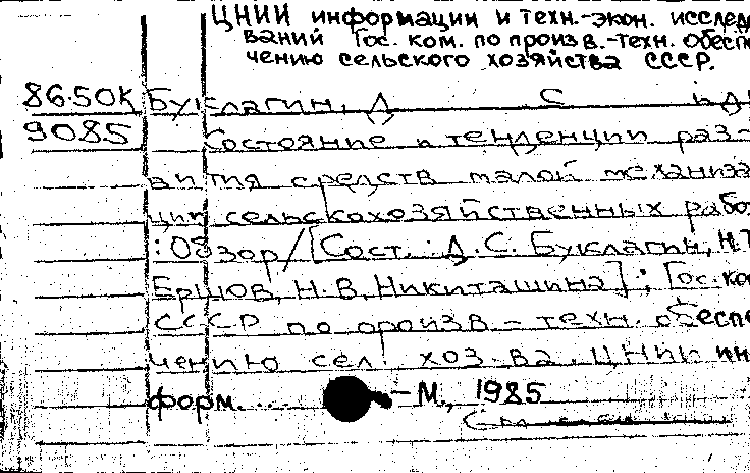 ЦНИИ информации и техн.-экон. исслед
ваний Гос. ком. по произв.-техн. обесп
чению сельского хозяйства СССР.
86.50К Буклагин, Д С и др
9085 Состояние и тенденции раз-
вития средств малой механиза
ции сельскохозяйственных рабо
: Обзор/[Сост. : Д.С. Буклагин, Н.Т
Ершов, Н.В. Никиташина] ; Гос. ко
СССР по произв-техн. обеспе
чению сел. хоз-ва, ЦНИИ ин
форм.... –М., 1985